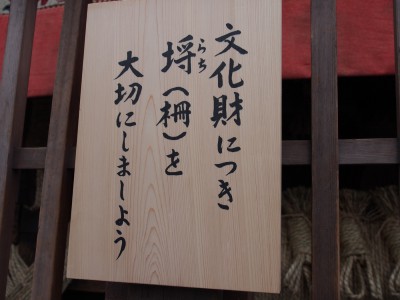 文化財につき
埒(柵)を
らち
大切にしましよう